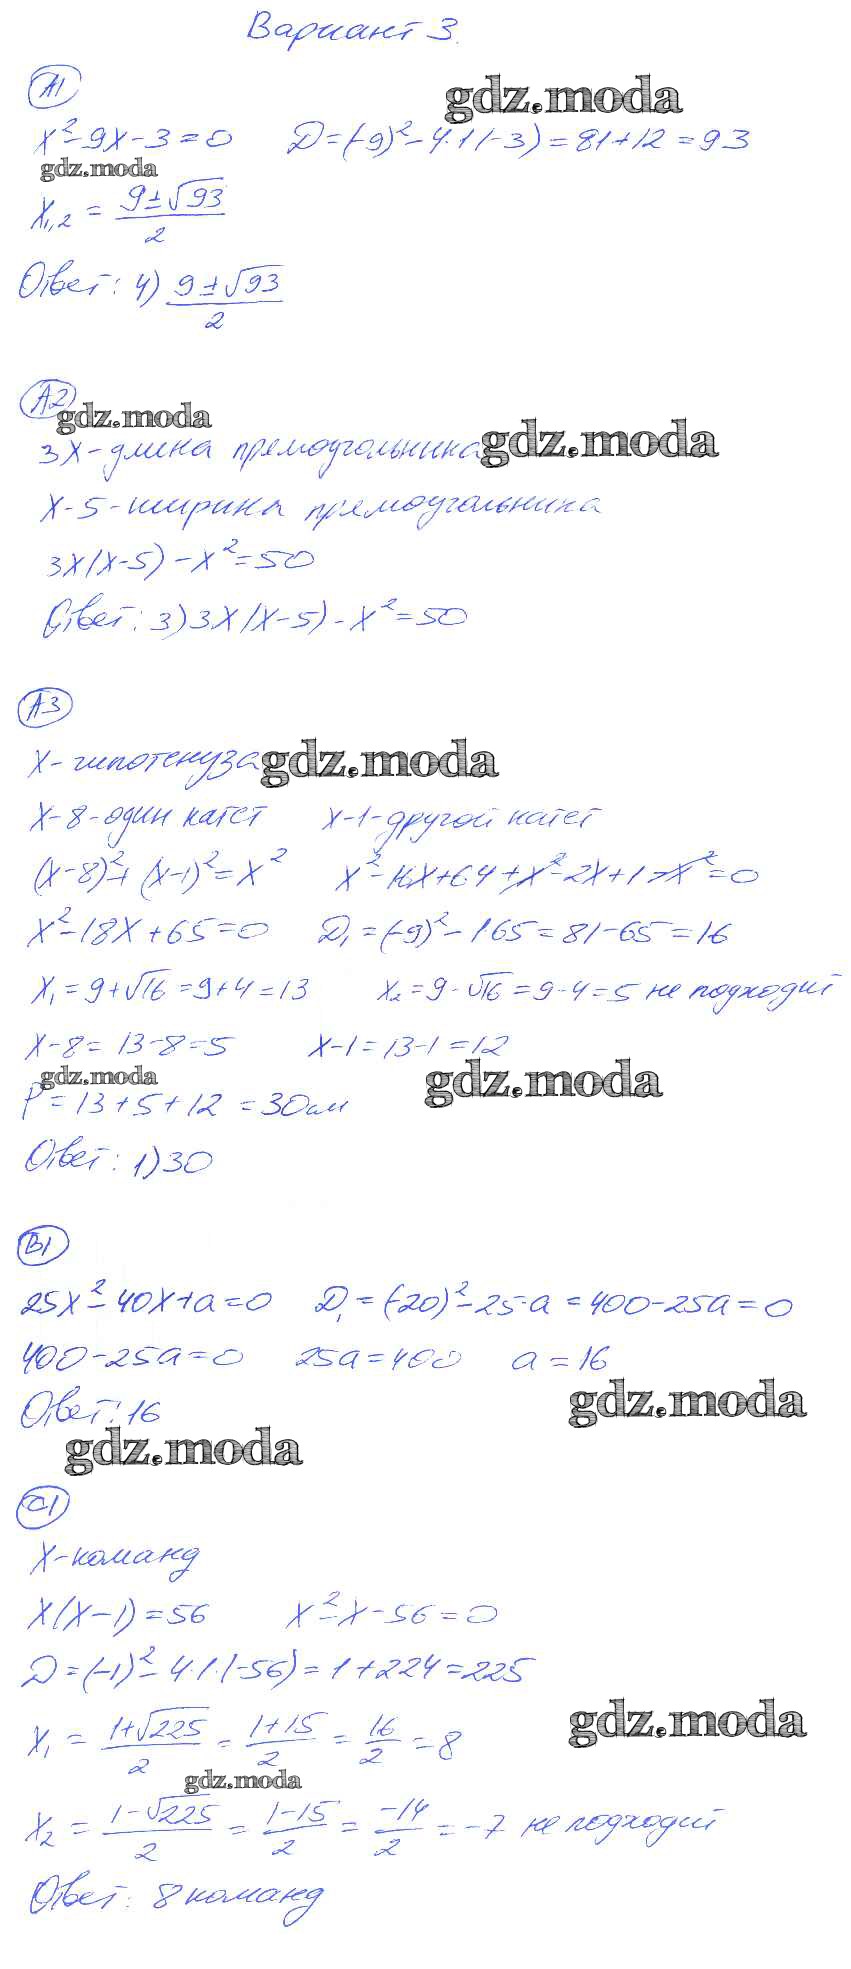 Вариант 3.
А1
gdz.moda
x² - 9x - 3 = 0 D = (-9)² - 4·1(-3) = 81 + 12 = 93
gdz.moda
x₁,₂ = (9 ± √93)/2
Ответ: 4) (9 ± √93)/2
А2
gdz.moda
3x - длина прямоугольника
gdz.moda
x - 5 - ширина прямоугольника
3x(x-5) - x² = 50
Ответ: 3) 3x(x-5) - x² = 50
А3
x - гипотенуза
gdz.moda
x - 8 - один катет x - 1 - другой катет
(x-8)² + (x-1)² = x² x² - 16x + 64 + x² - 2x + 1 - x² = 0
x² - 18x + 65 = 0 D₁ = (-9)² - 1·65 = 81 - 65 = 16
x₁ = 9 + √16 = 9 + 4 = 13 x₂ = 9 - √16 = 9 - 4 = 5 не подходит
x - 8 = 13 - 8 = 5 x - 1 = 13 - 1 = 12
gdz.moda
gdz.moda
P = 13 + 5 + 12 = 30 см
Ответ: 1) 30
В1
25x² - 40x + a = 0 D₁ = (-20)² - 25·a = 400 - 25a = 0
400 - 25a = 0 25a = 400 a = 16
gdz.moda
Ответ: 16
gdz.moda
С1
x - команд
x(x-1) = 56 x² - x - 56 = 0
D = (-1)² - 4·1·(-56) = 1 + 224 = 225
x₁ = (1 + √225)/2 = (1 + 15)/2 = 16/2 = 8
gdz.moda
gdz.moda
x₂ = (1 - √225)/2 = (1 - 15)/2 = -14/2 = -7 не подходит
Ответ: 8 команд